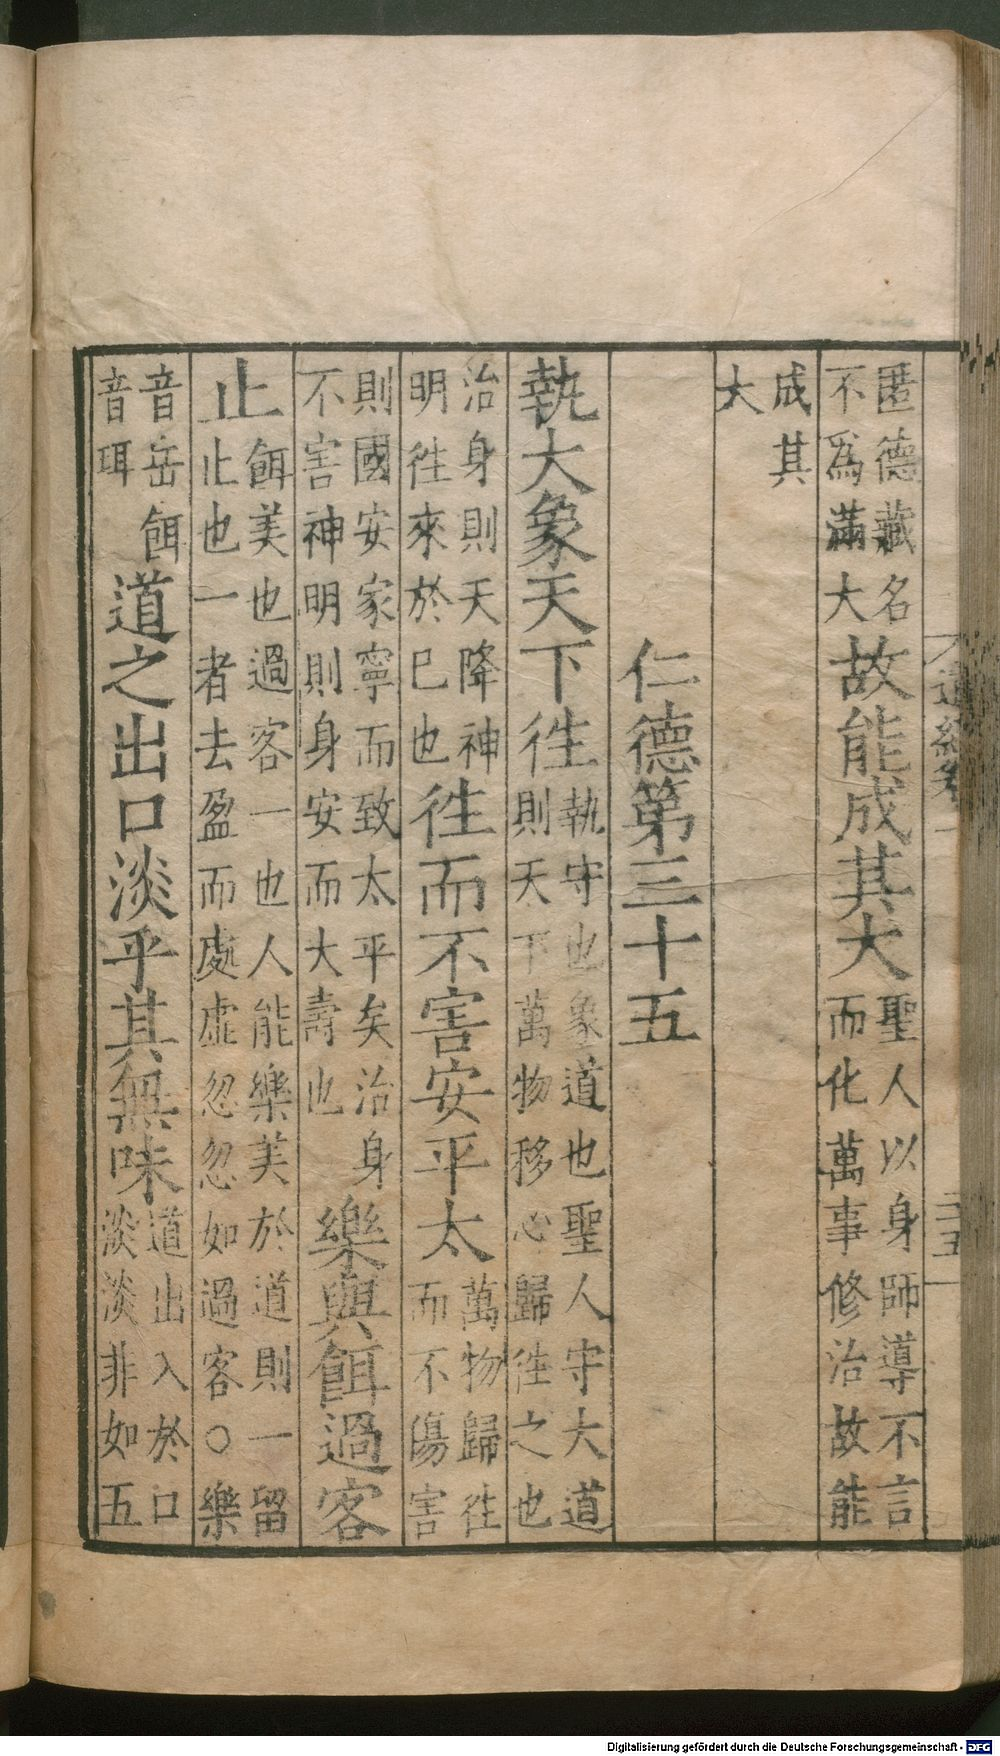 匿德藏名
不爲滿大
故能成其大
聖人以身師導不言
而化萬事修治故能
成其
大
仁德第三十五
執大象天下徃
執守也象道也聖人守大道
則天下萬物移心歸徃之也
治身則天降神
明徃來於巳也
徃而不害安平太
萬物歸徃
而不傷害
則國安家寧而致太平矣治身
不害神明則身安而大壽也
樂與餌過客
止
餌美也過客一也人能樂美於道則一留
止也一者去盈而處虛忽忽如過客○樂
音岳餌
音珥
道之出口淡乎其無味
道出入於口
淡淡非如五
道經卷一
三五
Digitalisierung gefördert durch die Deutsche Forschungsgemeinschaft - DFG